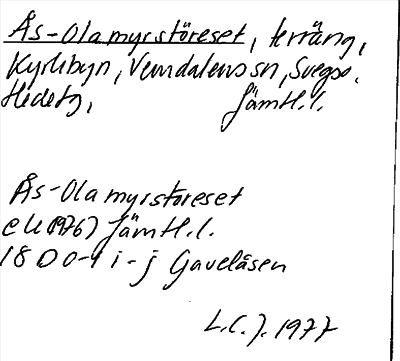 Ås-Olamyrstöreset, terräng,
Kyrkbyn, Vemdalens sn, Svegs
Hedetg, Jämtl.l.
Ås-Olamyrstöreset
ek (1976) Jämtl.l.
18 D 0-1 i-j Gaveläsen
L.C.J. 1977